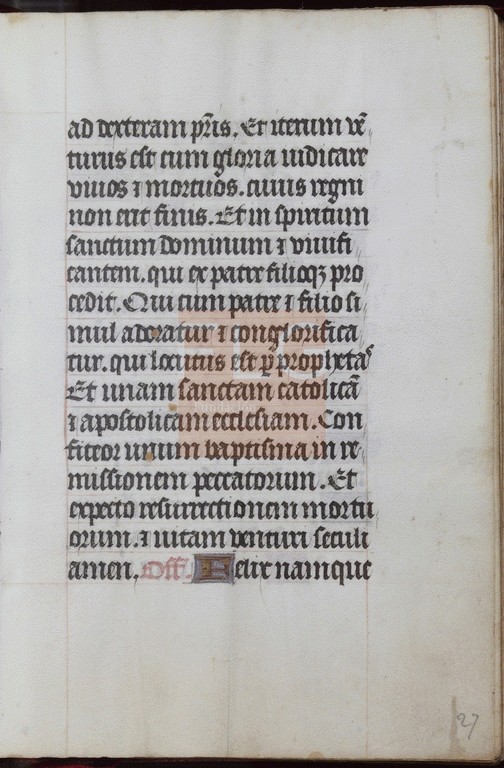 ad dexteram pr̃is. Et iterum vẽ
turus est cum gloria iudicare
viuos ⁊ mortuos. cuius regni
non erit finis. Et in spiritum
sanctum dominum ⁊ viuifi
cantem. qui ex patre filioqꝫ pro
cedit. Qui cum patre ⁊ filio si
mul adoratur ⁊ conglorifica
tur. qui locutus est ꝑ prophetas
Et unam sanctam catolicã
⁊ apostolicam ecclesiam. Con
fiteor unum baptisma in re
missionem peccatorum. Et
expecto resurrectionem mortu
orum. ⁊ uitam venturi seculi
amen. Off. Felix namque
27